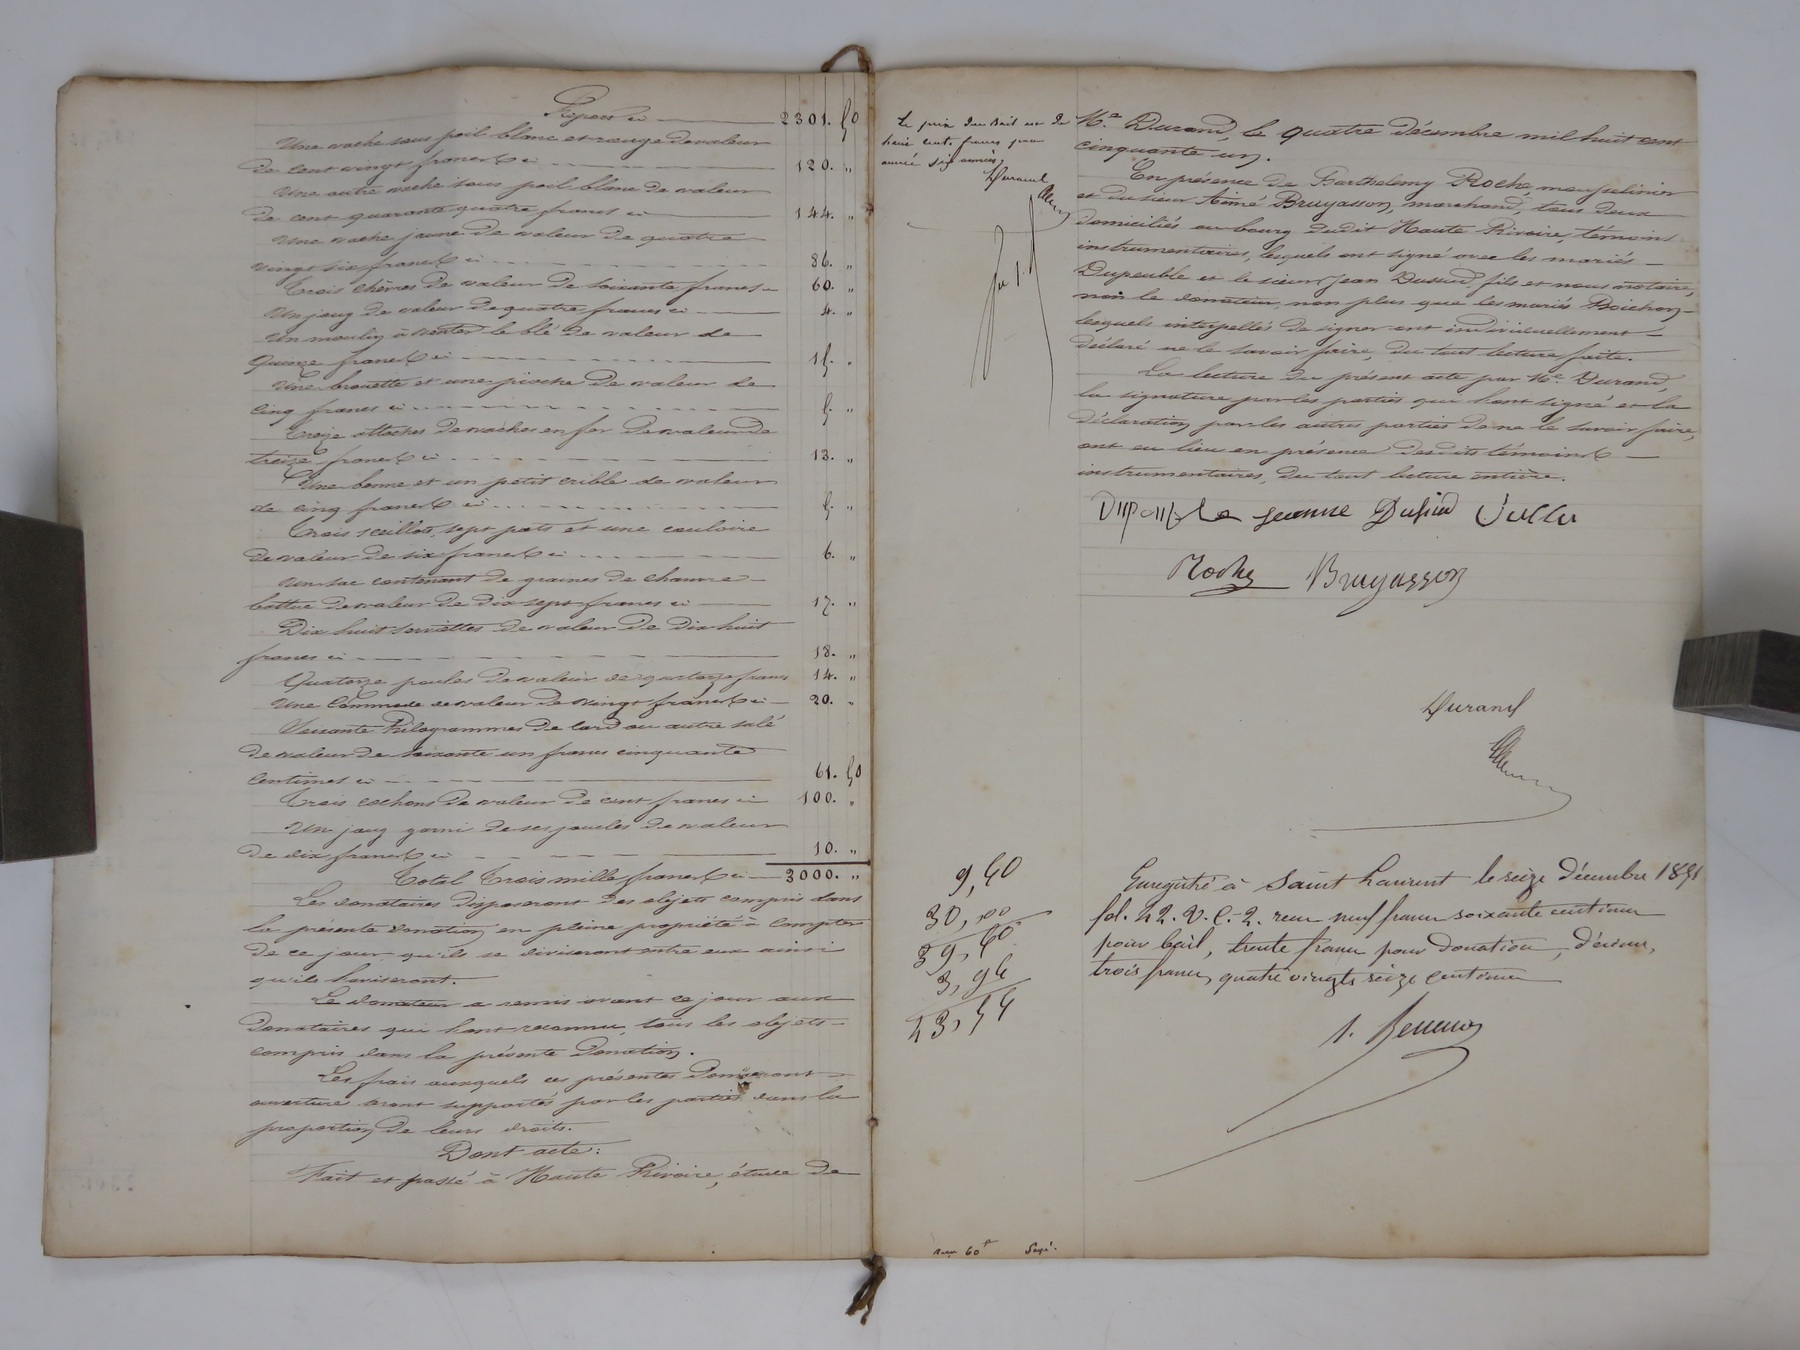 Report ci 2301. 50
Une vache sous poil blanc et rouge de valeur
de cent vingt francs ci 120. "
Une autre vache sous poil blanc de valeur
de cent quarante quatre francs ci 144. "
Une vache jaune de valeur de quatre
vingt six francs ci 86. "
Trois chèvres de valeur de soixante francs ci 60. "
Un joug de valeur de quatre francs ci 4. "
Un moulin à venter le blé de valeur de
quinze francs ci 15. "
Une brouette et une pioche de valeur de
cinq francs ci 5. "
Treize attaches de vaches en fer de valeur de
treize francs ci 13. "
Une benne et un petit crible de valeur
de cinq francs ci 5. "
Trois seillots, sept pots et une couloire
de valeur de six francs ci 6. "
Un sac contenant de graines de chanvre
battue de valeur de dix sept francs ci 17. "
Dix huit serviettes de valeur de dix huit
francs ci 18. "
Quatorze poules de valeur de quatorze francs 14. "
Une commode de valeur de vingt francs ci 20. "
Soixante Kilogrammes de lard ou autre salé
de valeur de soixante un francs cinquante
centimes ci 61. 50
Trois cochons de valeur de cent francs ci 100. "
Un joug garni de ses joucles de valeur
de dix francs ci 10. "
Total Trois mille francs ci 3000. "
Les donataires disposeront des objets compris dans
la présente donation en pleine propriété à compter
de ce jour qu'ils se diviseront entre eux ainsi
qu'ils aviseront.
Le donateur a remis avant ce jour aux
donataires qui l'ont reconnu, tous les objets
compris dans la présente donation.
Les frais auxquels ces présentes donneront
ouverture seront supportés par les parties dans la
proportion de leurs droits.
Dont acte:
Fait et passé à Haute Rivoire, étude de
Le prix du Bail est de
cent francs pour
six années,
Durand
Me Durand, le quatre décembre mil huit cent
cinquante un.
En présence de Barthelemy Roche, mousselinier
et du sieur Aimé Bruyasson, marchand, tous deux
domiciliés au bourg dudit Haute Rivoire, témoins
instrumentaires, lesquels ont signé avec les mariés
Dupeuble et le sieur Jean Dussud, fils et nous notaire,
non le donateur, non plus que les mariés Boichon
lesquels interpellés de signer ont individuellement
déclaré ne le savoir faire, du tout lecture faite.
La lecture du présent acte par Me Durand,
la signature par les parties qui l'ont signé et la
déclaration par les autres parties de ne le savoir faire,
ont eu lieu en présence desdits témoins
instrumentaires, du tout lecture entière.
Dupeuble Jeanne Dusud
Roche Bruyasson
Durand
9,60
30,00
39,60
3,96
43,56
Enregistré à Saint Laurent le seize décembre 1851
fol. 42. V. C. 2. reçu neuf francs soixante centimes
pour bail, trente francs pour donation, décime,
trois francs quatre vingts seize centimes
60